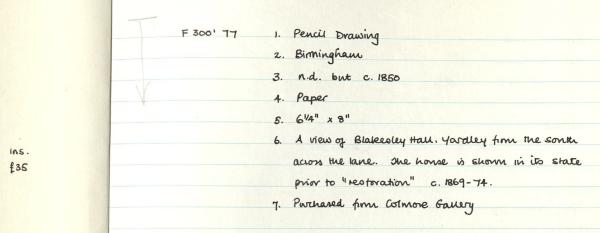 F 300' 77
1. Pencil Drawing
2. Birmingham
3. n.d. but c. 1850
4. Paper
5. 6¼" x 8"
6. A view of Blakesley Hall. Yardley from the south
across the lane. The house is shown in its state
prior to "restoration" c. 1869-74.
7. Purchased from Colmore Gallery
ins.
£35